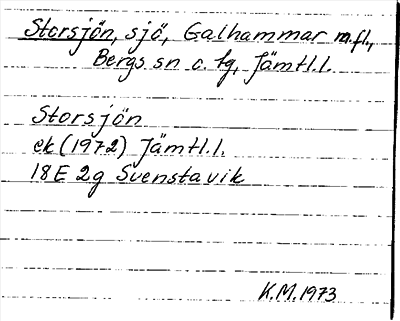 Storsjön, sjö, Galhammar m.fl.,
Bergs sn o. tg, Jämtl.l.
Storsjön
ek (1972) Jämtl.l.
18E 2g Svenstavik
K.M. 1973